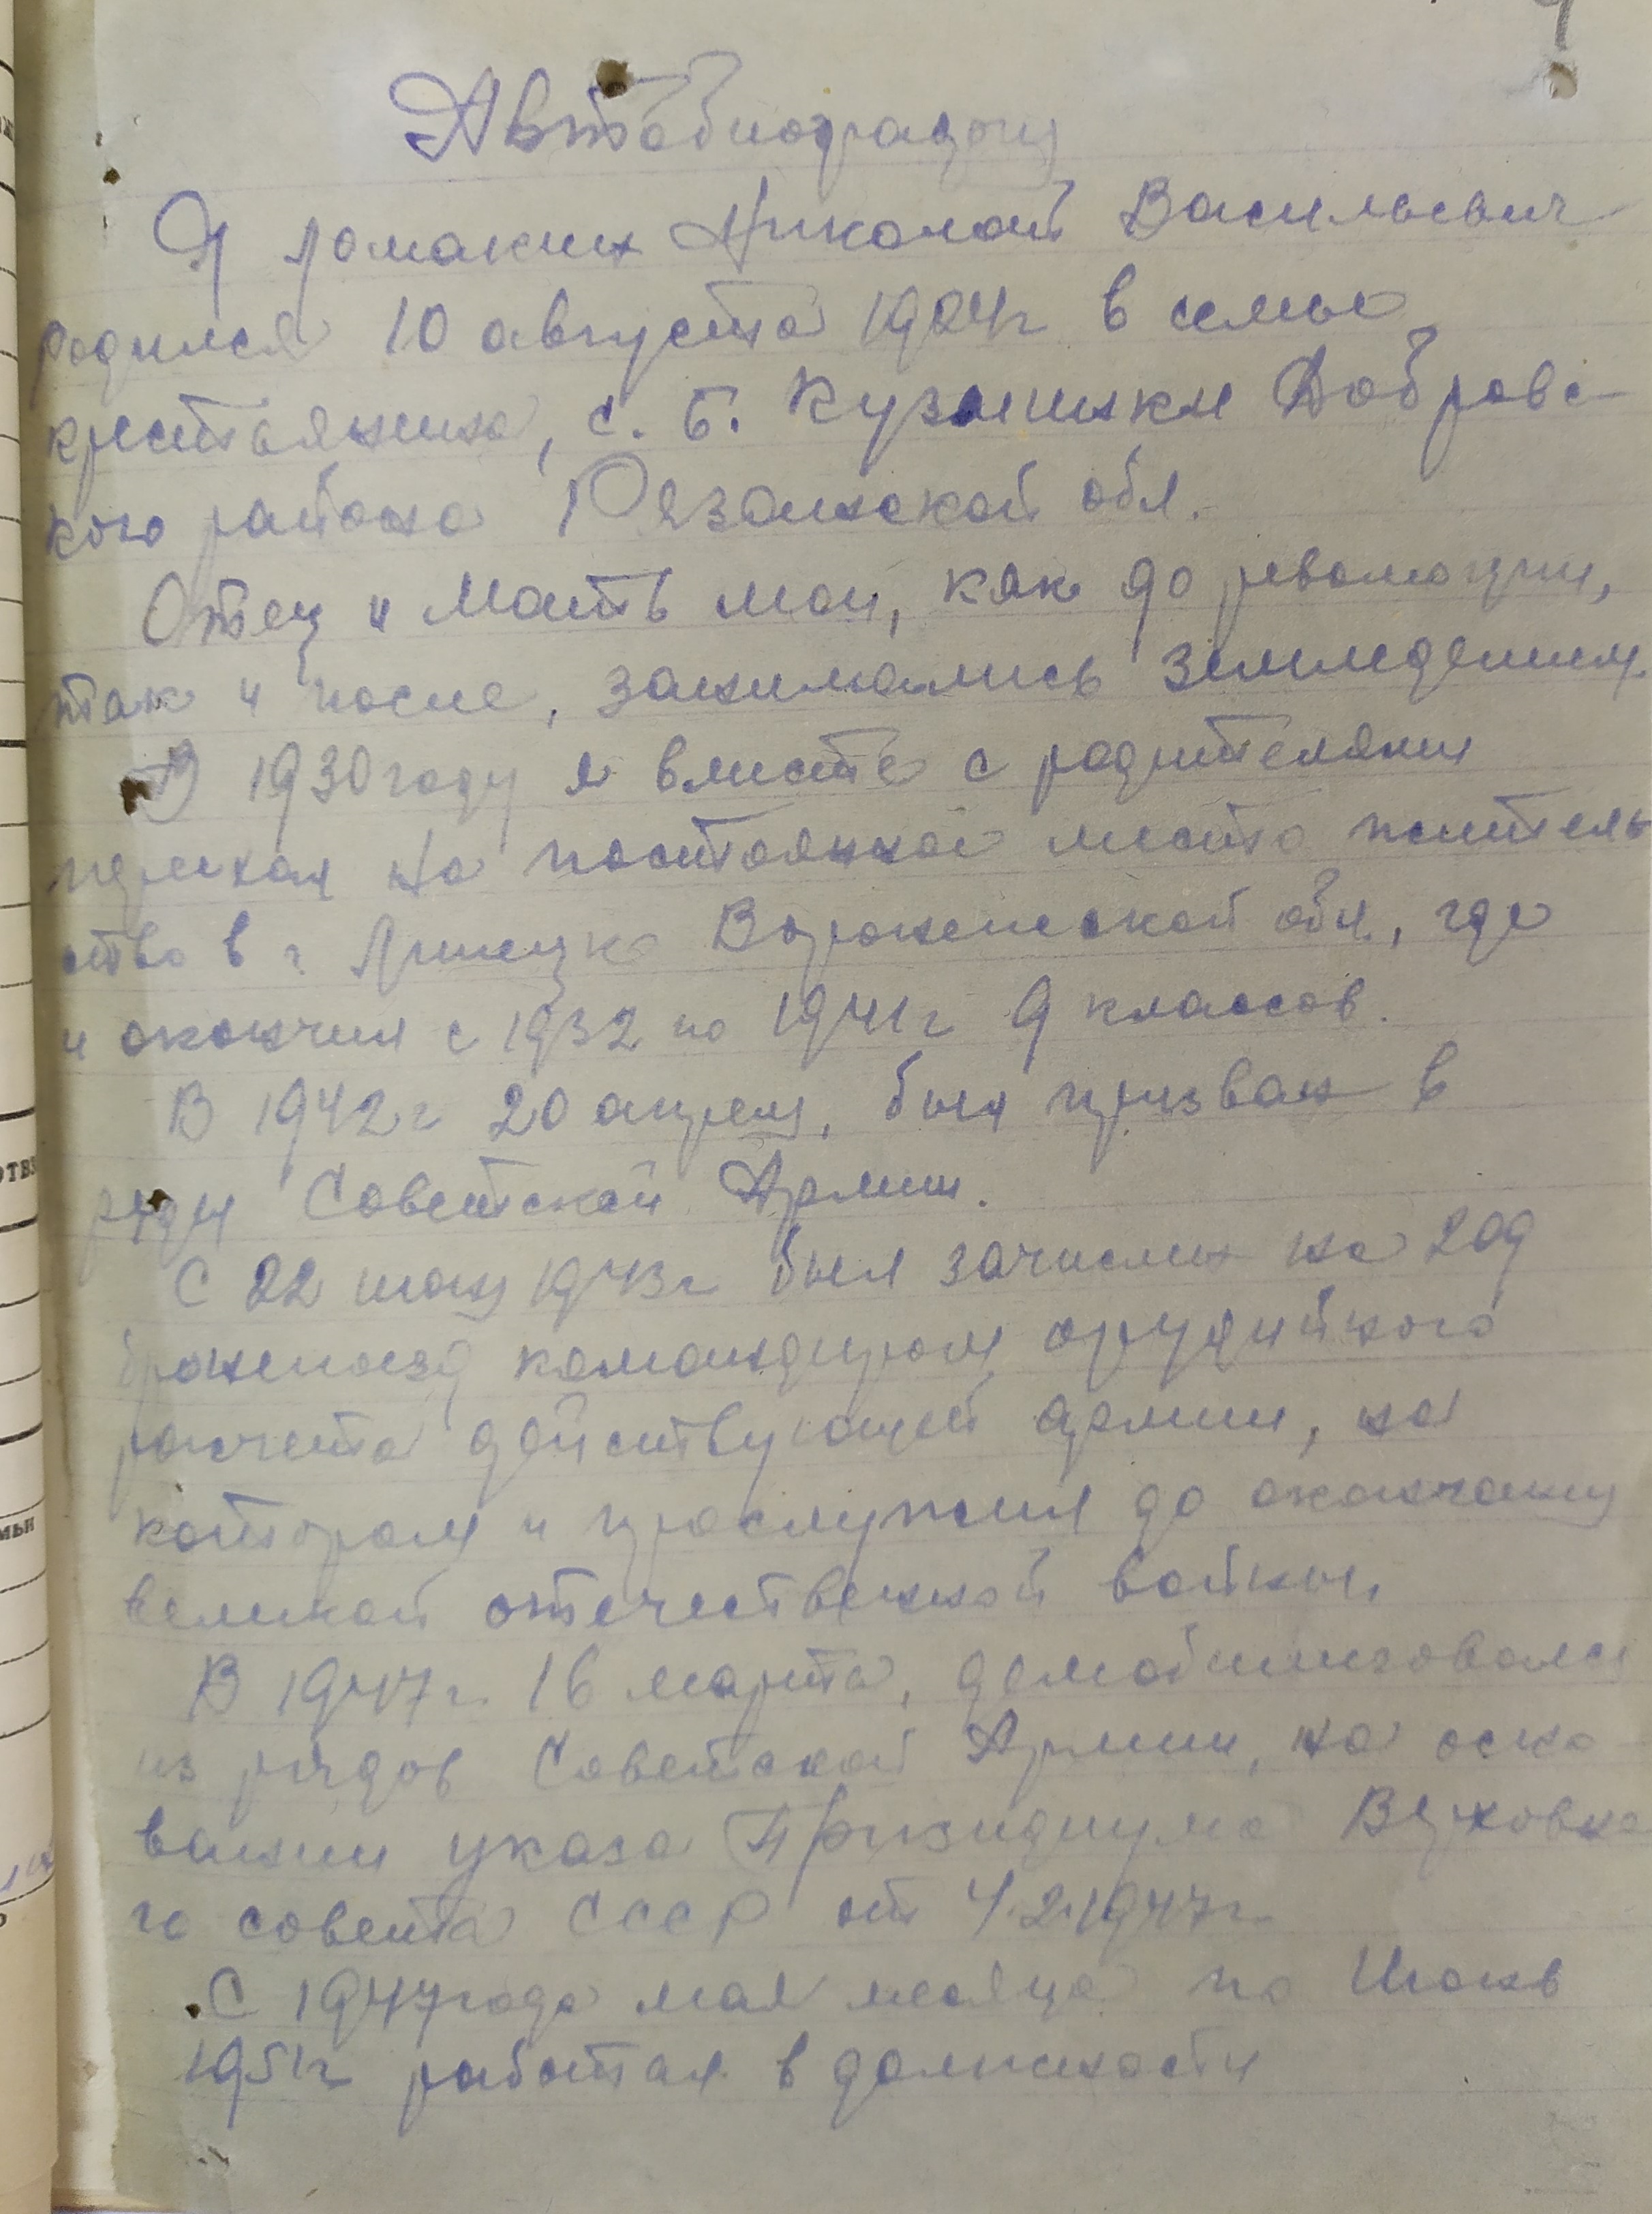 Автобиография
Я Ломакин Николай Васильевич
родился 10 августа 1924г в семье
крестьянина, с. Б. Кузьминки Добровс-
кого района Рязанской обл.
Отец и Мать мои, как до революции,
так и после, занимались земледелием.
В 1930 году я вместе с родителями
переехал на постоянное место житель
ство в г Липецк Воронежской обл, где
и окончил с 1932 по 1941г 9 классов.
В 1942г 20 апреля, был призван в
ряды Советской Армии.
С 22 1943г был зачислен на 209
бронепоезд командиром орудийного
расчета действующей армии, на
котором и прослужил до окончания
великой отечественной войны.
В 1947г. 16 марта, демобилизовался
из рядов Советской Армии, на осно
вании указа Президиума Верховно
го совета СССР от 4.2.1947г
С 1947 года мая месяца по Июнь
1951г работал в должности